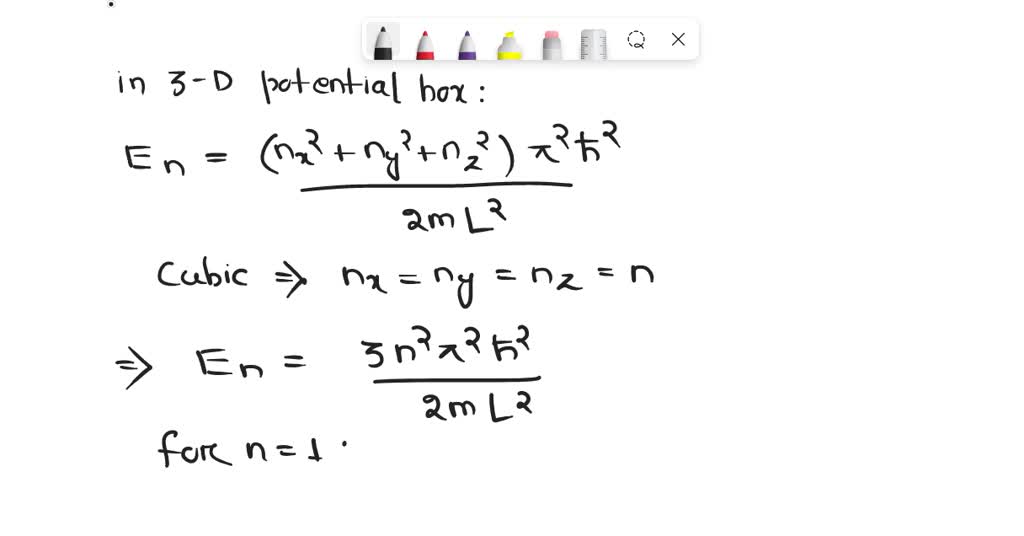 in 3-D potential box:
En = (nx² + ny² + nz²) π²ħ² / 2mL²
Cubic ⇒ nx = ny = nz = n
⇒ En = 3n²π²ħ² / 2mL²
for n = 1